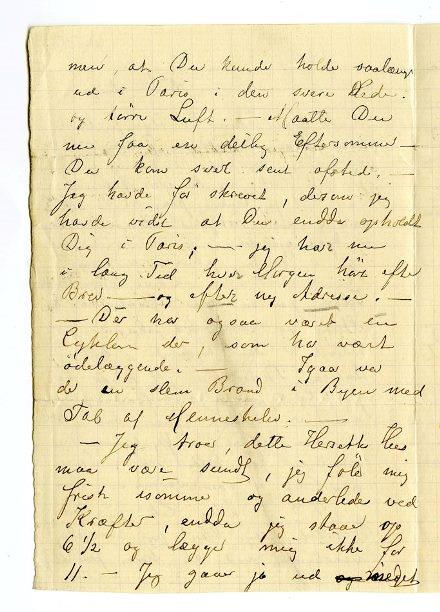 men, at Du kunde holde saalænge
ud i Paris i den svære Hede
og tørre Luft. — Maatte Du
nu faa en deilig Eftersommer —
Du kom svært sent afsted. —
Jeg havde før skrevet, dersom jeg
havde vidst at Du endda opholdt
Dig i Paris; — jeg har nu
i lang Tid hver Morgen hört efter
Brev — og efter ny Adresse. —
— Der har ogsaa været en
Cyklon der, som har vært
ödelæggende. — Igaar va
de en slem Brand i Byen med
Tab af Menneskeliv. —
— Jeg troer, dette Herseth Hees
maa være sundt, jeg føle mig
frisk isomme og anderlede ved
Kræfter, endda jeg staar op
6 1/2 og lægge mig ikke før
11. — Jeg gaar jo ud meget